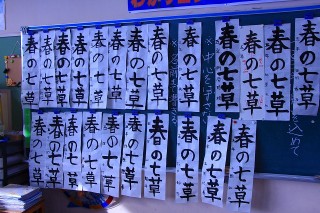 春の七草
春の七草
春の七草
春の七草
春の七草
春の七草
春の七草
春の七草
春の七草
春の七草
春の七草
春の七草
春の七草
込めて
春の七草
春の七草
春の七草
春の七草
春の七草
春の七草
春の七草
春の七草
春の七草
春の七草